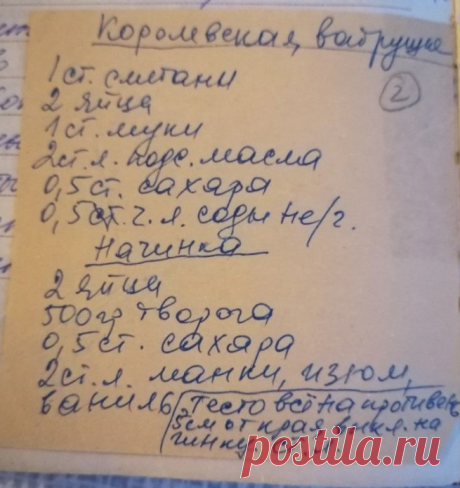 Королевская ватрушка
2
1 ст. сметаны
2 яйца
1 ст. муки
2 ст. л. подс. масла
0,5 ст. сахара
0,5 ч. л. соды не/г.
Начинка
2 яйца
500 гр творога
0,5 ст. сахара
2 ст. л. манки, изюм,
ваниль (Тесто всё на противень
5 см от края выкл. на
чинку
postila.ru